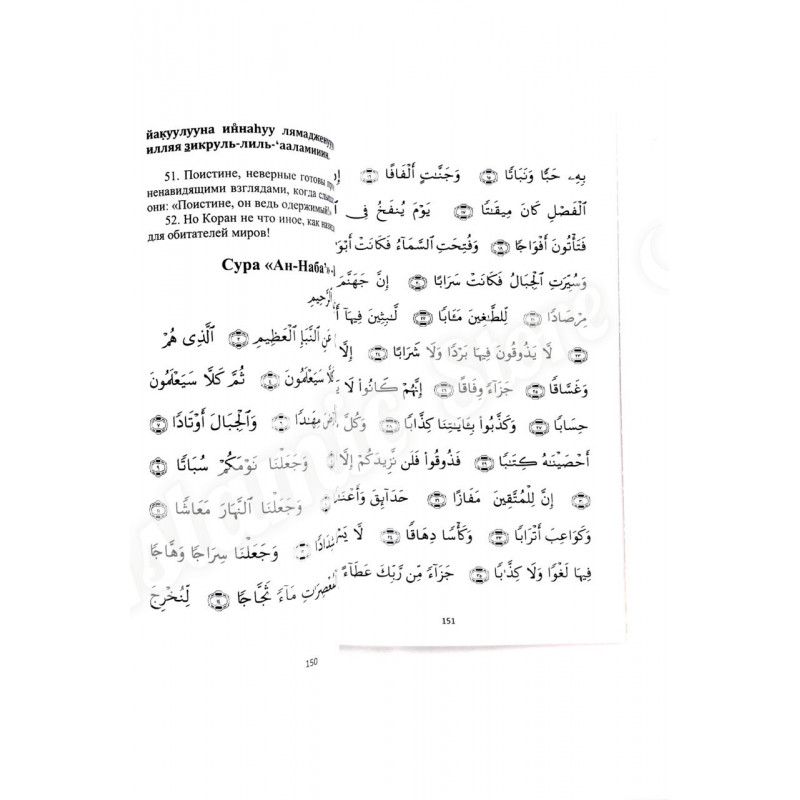 йакуулууна иннаhуу лямаджнуун
илляя зикруль-лиль-‘ааламиини.
51. Поистине, неверные готовы
ненавидящими взглядами, когда
они: «Поистине, он ведь одержимый!»
52. Но Коран не что иное, как
для обитателей миров!
Сура «Ан-Наба’»
ٱلرَّحِيمِ
عَنِ ٱلنَّبَإِ ٱلْعَظِيمِ ٢ ٱلَّذِى هُمْ
كَلَّا سَيَعْلَمُونَ ٤ ثُمَّ كَلَّا سَيَعْلَمُونَ
مِهَٰدًا ٦ وَٱلْجِبَالَ أَوْتَادًا ٧
وَجَعَلْنَا نَوْمَكُمْ سُبَاتًا ٩
وَجَعَلْنَا ٱلنَّهَارَ مَعَاشًا ١١
شِدَادًا ١٢ وَجَعَلْنَا سِرَاجًا وَهَّاجًا
ٱلْمُعْصِرَٰتِ مَآءً ثَجَّاجًا ١٤ لِّنُخْرِجَ
150
بِهِۦ حَبًّا وَنَبَاتًا ١٥ وَجَنَّٰتٍ أَلْفَافًا ١٦ إِنَّ
ٱلْفَصْلِ كَانَ مِيقَٰتًا ١٧ يَوْمَ يُنفَخُ فِى
فَتَأْتُونَ أَفْوَاجًا ١٨ وَفُتِحَتِ ٱلسَّمَآءُ فَكَانَتْ
وَسُيِّرَتِ ٱلْجِبَالُ فَكَانَتْ سَرَابًا ٢٠ إِنَّ جَهَنَّمَ
مِرْصَادًا ٢١ لِّلطَّٰغِينَ مَـَٔابًا ٢٢ لَّٰبِثِينَ فِيهَآ
٢٣ لَّا يَذُوقُونَ فِيهَا بَرْدًا وَلَا شَرَابًا ٢٤ إِلَّا
وَغَسَّاقًا ٢٥ جَزَآءً وِفَاقًا ٢٦ إِنَّهُمْ كَانُوا۟ لَا
حِسَابًا ٢٧ وَكَذَّبُوا۟ بِـَٔايَٰتِنَا كِذَّابًا ٢٨ وَكُلَّ
أَحْصَيْنَٰهُ كِتَٰبًا ٢٩ فَذُوقُوا۟ فَلَن نَّزِيدَكُمْ إِلَّا
٣٠ إِنَّ لِلْمُتَّقِينَ مَفَازًا ٣١ حَدَآئِقَ
وَكَوَاعِبَ أَتْرَابًا ٣٣ وَكَأْسًا دِهَاقًا ٣٤ لَّا
فِيهَا لَغْوًا وَلَا كِذَّٰبًا ٣٥ جَزَآءً مِّن رَّبِّكَ عَطَآءً
151